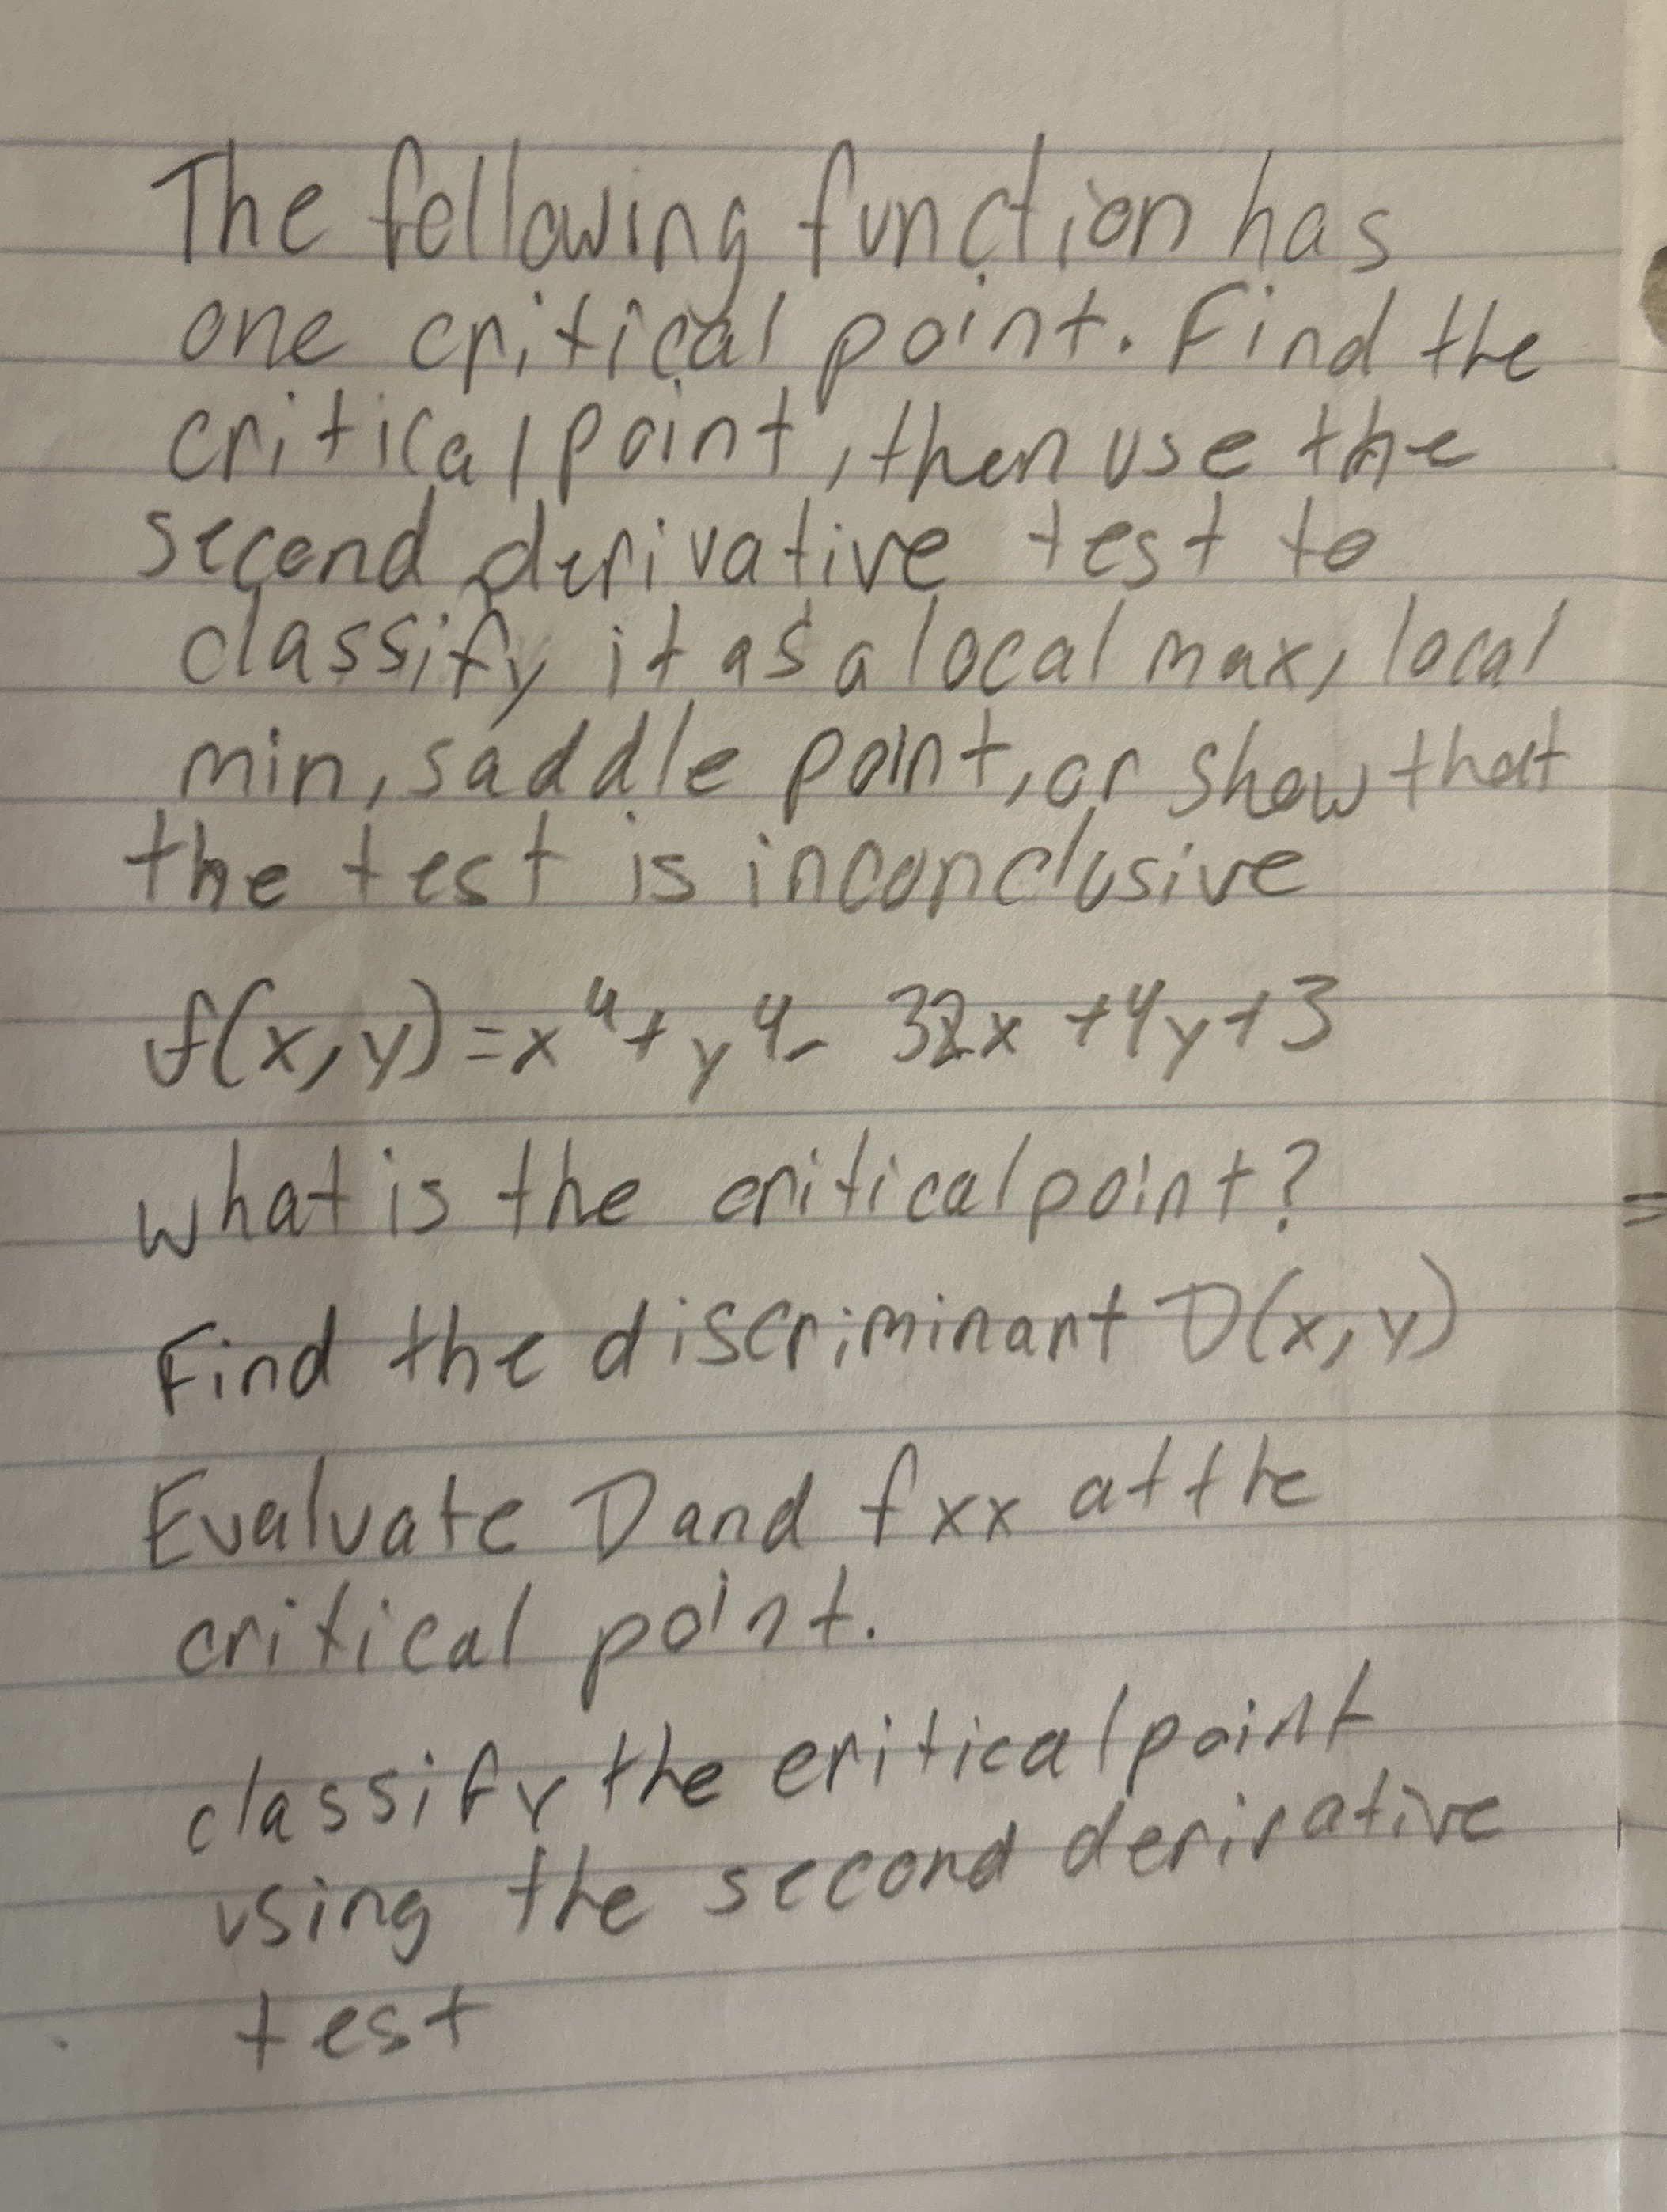 The following function has
one critical point. Find the
critical point, then use the
second derivative test to
classify it as a local max, local
min, saddle point, or show that
the test is inconclusive
f(x,y)=x⁴+y⁴- 32x +4y+3
what is the critical point?
Find the discriminant D(x,y)
Evaluate D and fxx at the
critical point.
classify the critical point
using the second derivative
test